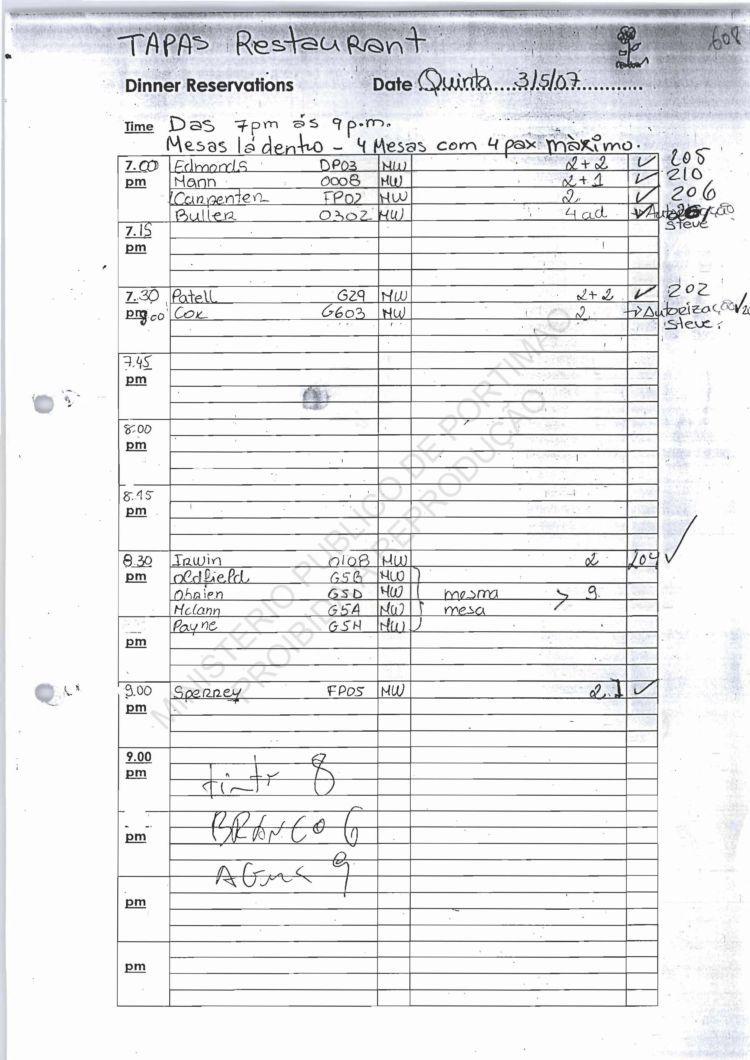 608
TAPAS Restaurant
Dinner Reservations Date Quinta 3/5/07
Time Das 7pm ás 9p.m.
Mesas lá dentro - 4 Mesas com 4 pax màximo.
7.00 Edmonds DP03 MW 2+2 ✓ 208
pm Mann 0008 MW 2+1 ✓ 210
Carpenter FP02 MW 2 ✓ 206
Buller 0302 MW 4 ad
Steve
7.15
pm
7.30 Patell G29 MW 2+2 ✓ 202
pm Cox G603 MW 2 → Autorização
Steve.
7.45
pm
8:00
pm
8.15
pm
8.30 Irwin 0108 MW 2 204 ✓
pm Oldfield G5B MW
Obrien G5D MW mesma > 9
McCann G5A MW mesa
Payne G5H MW
pm
9.00 Sperrey FP05 MW 2 ✓
pm
9.00
pm
tinto 8
BRANCO 6
pm
AGUA 9
pm
pm
MINISTERIO PUBLICO DE PORTIMAO
PROIBIDA A REPRODUÇÃO